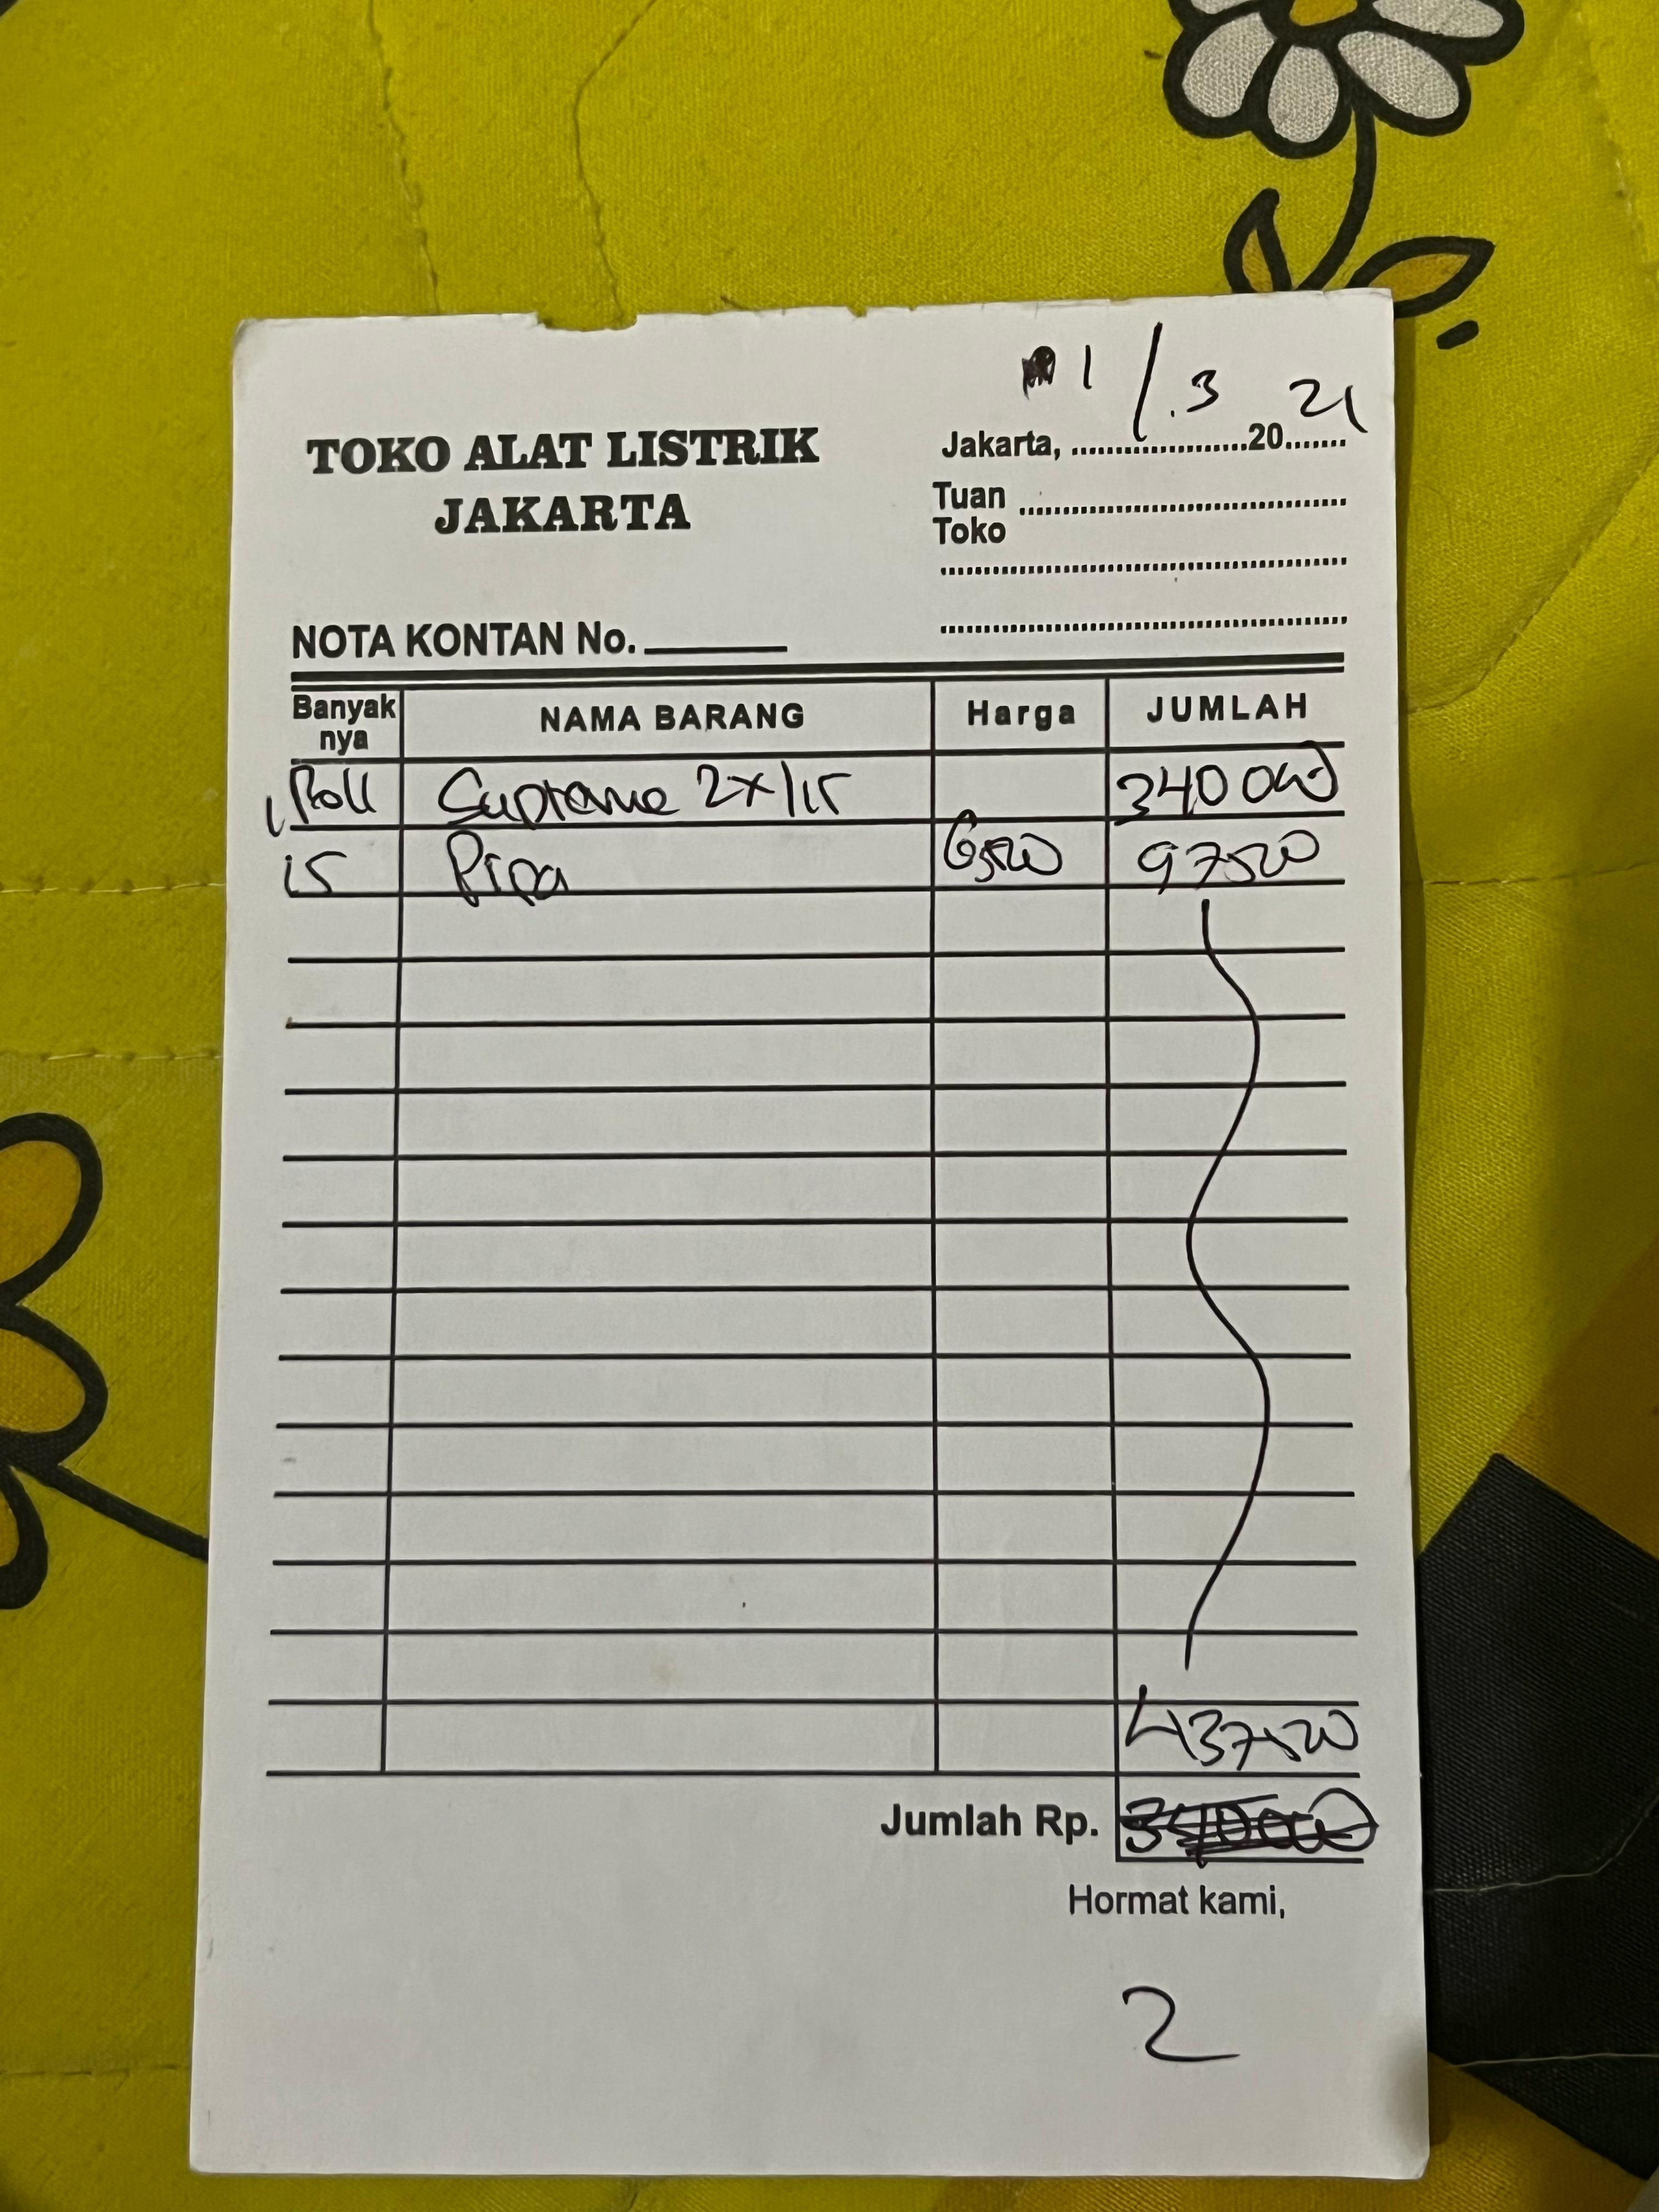 1 / 3 21
TOKO ALAT LISTRIK
JAKARTA
Jakarta, ........................20.......
Tuan
Toko
NOTA KONTAN No. ______
Banyak nya NAMA BARANG Harga JUMLAH
1 Roll Suprame 2x1,5 340 000
15 Pipa 6500 97500
437500
Jumlah Rp. 340000
Hormat kami,
2